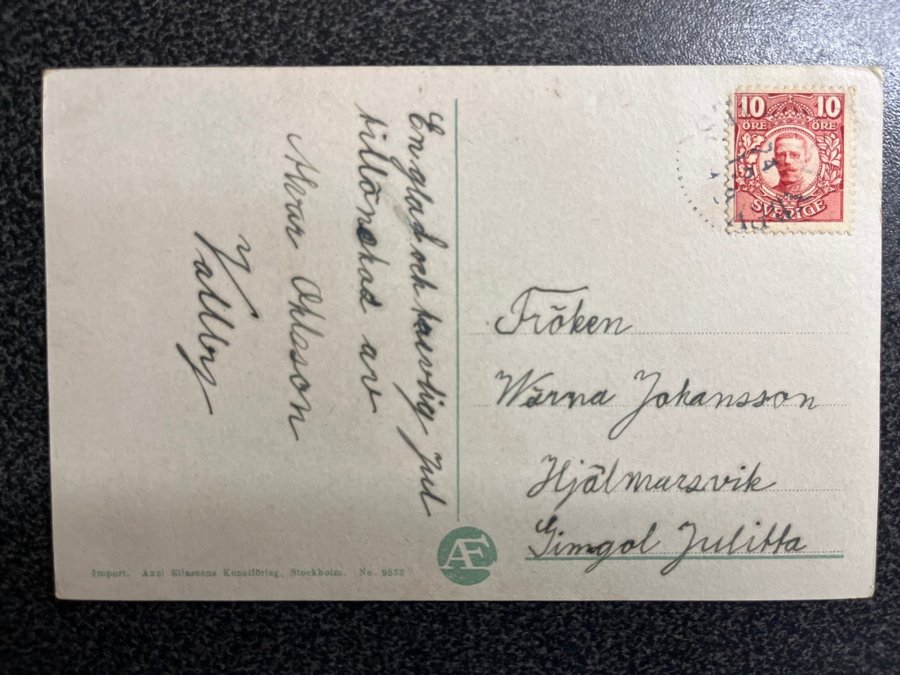 En glad och trevlig Jul
tillönskas av
Ohlsson
Valby
10 10
ÖRE ÖRE
SVERIGE
Fröken
Wärna Johansson
Hjälmarsvik
Gimgol Julitta
AE
Import. Axel Eliassons Konstförlag, Stockholm. No. 9533